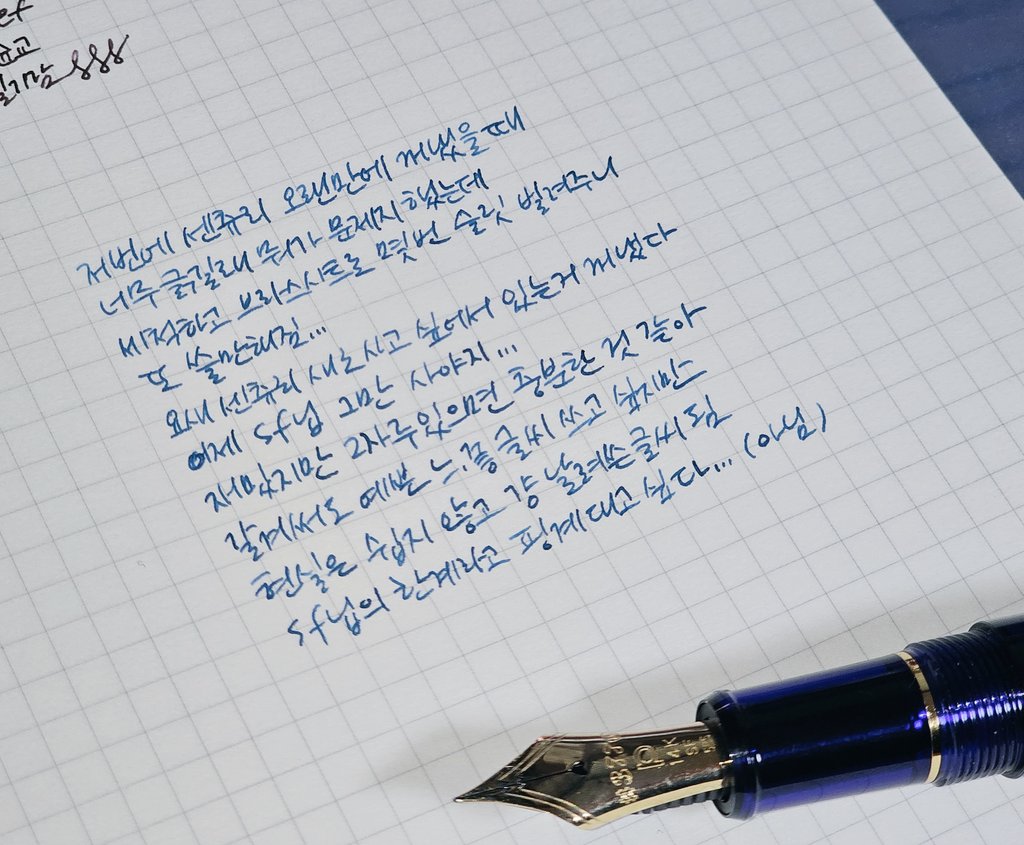 ef
저번에 센츄리 오랜만에 꺼냈을 때
너무 긁길래 뭐가 문제지 했는데
세척하고 브라스시트로 몇번 슬릿 벌려주니
또 쓸만해짐...
요새 센츄리 새로 사고 싶에서 있는거 꺼냈다
이제 sf닙 그만 사야지...
재밌지만 2자루있으면 충분한 것 같아
잘게써도 예쁜 느낌쫑 글씨 쓰고 싶지만
현실은 쉽지 않고 걍 날려쓴글씨 됨
sf닙의 한계라고 핑계대고 싶다... (아님)
14K
585